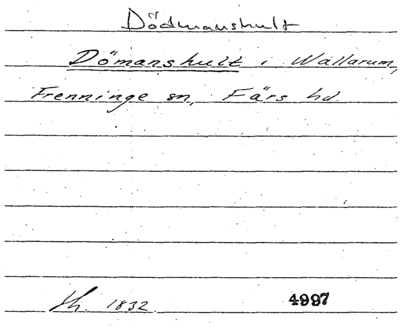 Dödmanshult
Dömanshult i Wallarum,
Frenninge sn, Färs hd.
1832 4997